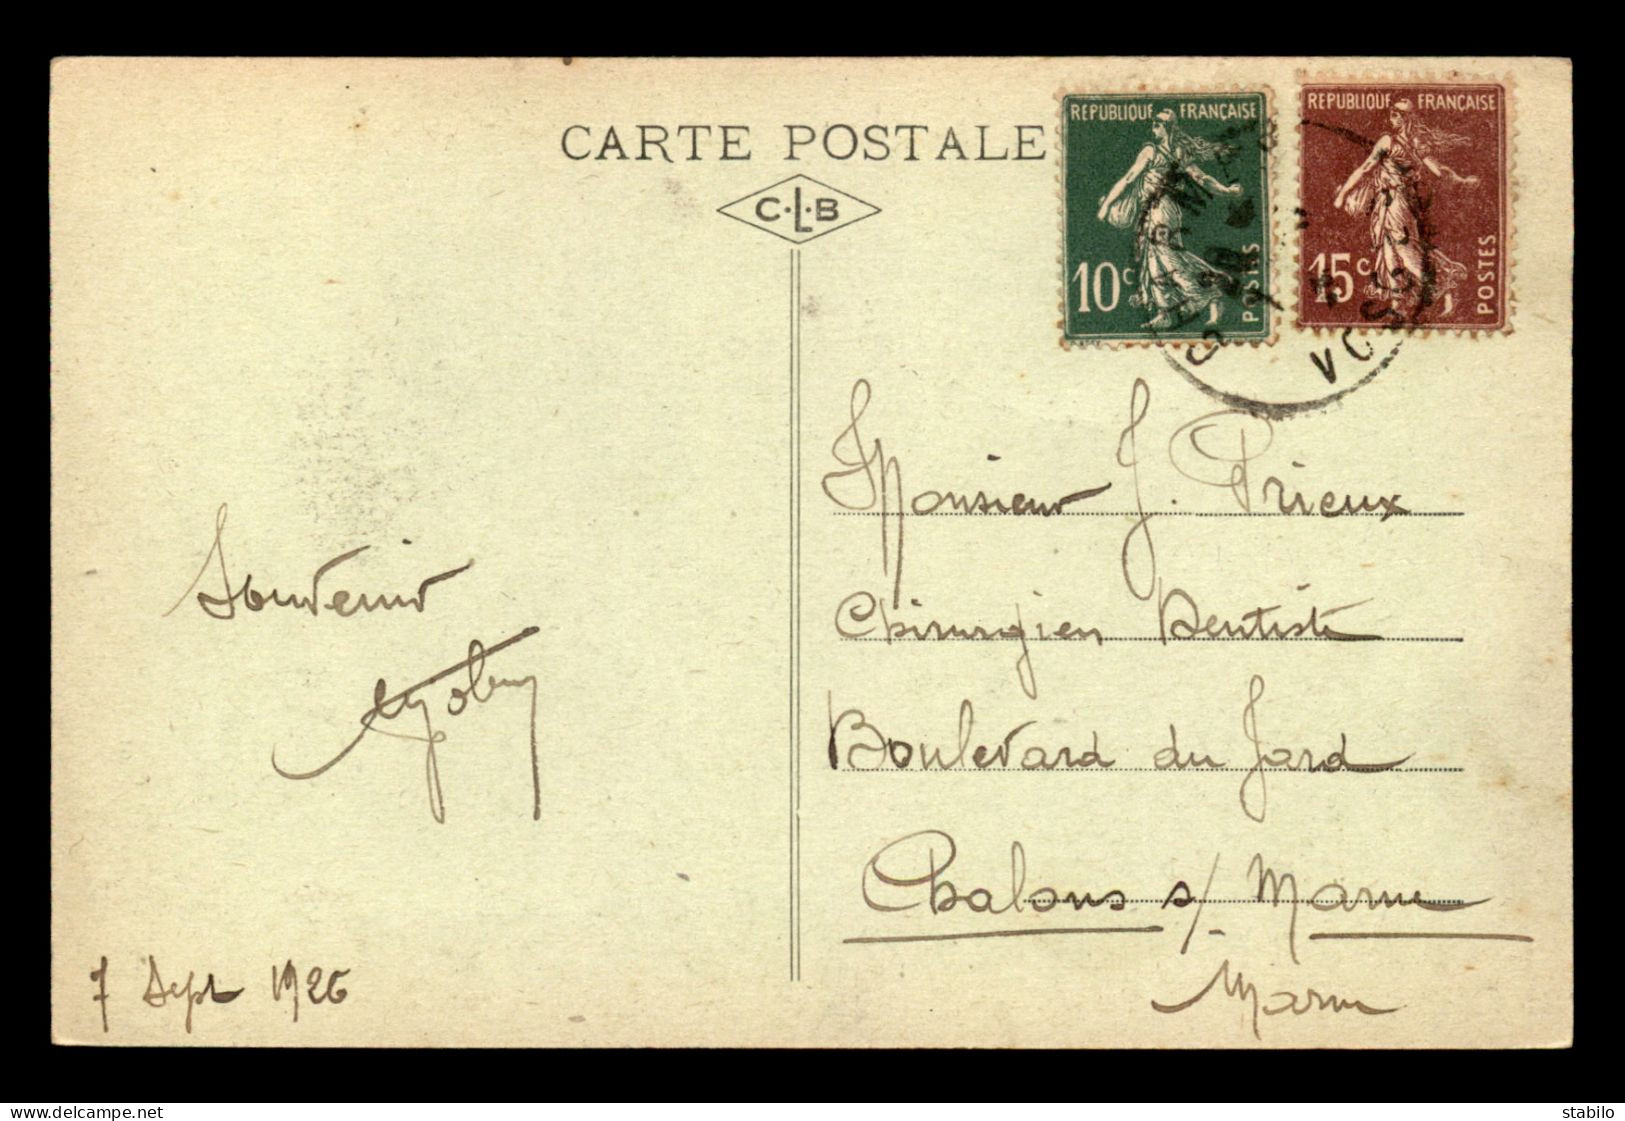 CARTE POSTALE
C·L·B
REPUBLIQUE FRANÇAISE
10c
POSTES
REPUBLIQUE FRANÇAISE
15c
POSTES
CHARMES
VOSGES
Monsieur J. Prieux
Chirurgien Dentiste
Boulevard du Jard
Chalons s/ Marne
Marne
Souvenir
7 Sept 1926
www.delcampe.net
stabilo